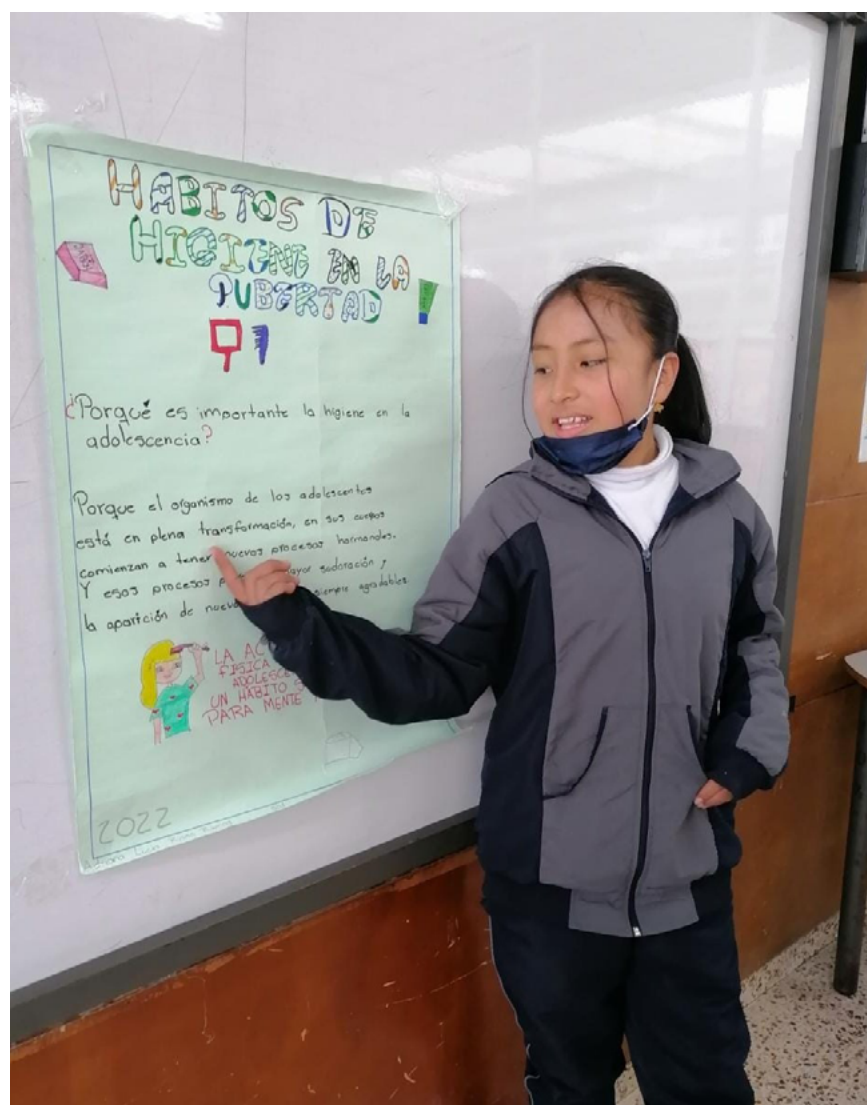 HABITOS DE
HIGIENE EN LA
PUBERTAD
¿Porqué es importante la higiene en la
adolescencia?
Porque el organismo de los adolescentes
está en plena transformación, en sus cuerpos
comienzan a tener nuevos procesos hormonales.
Y esos procesos mayor sudoración y
la aparición de siempre agradables
LA
FISICA
UN HABITO
PARA MENTE
2022